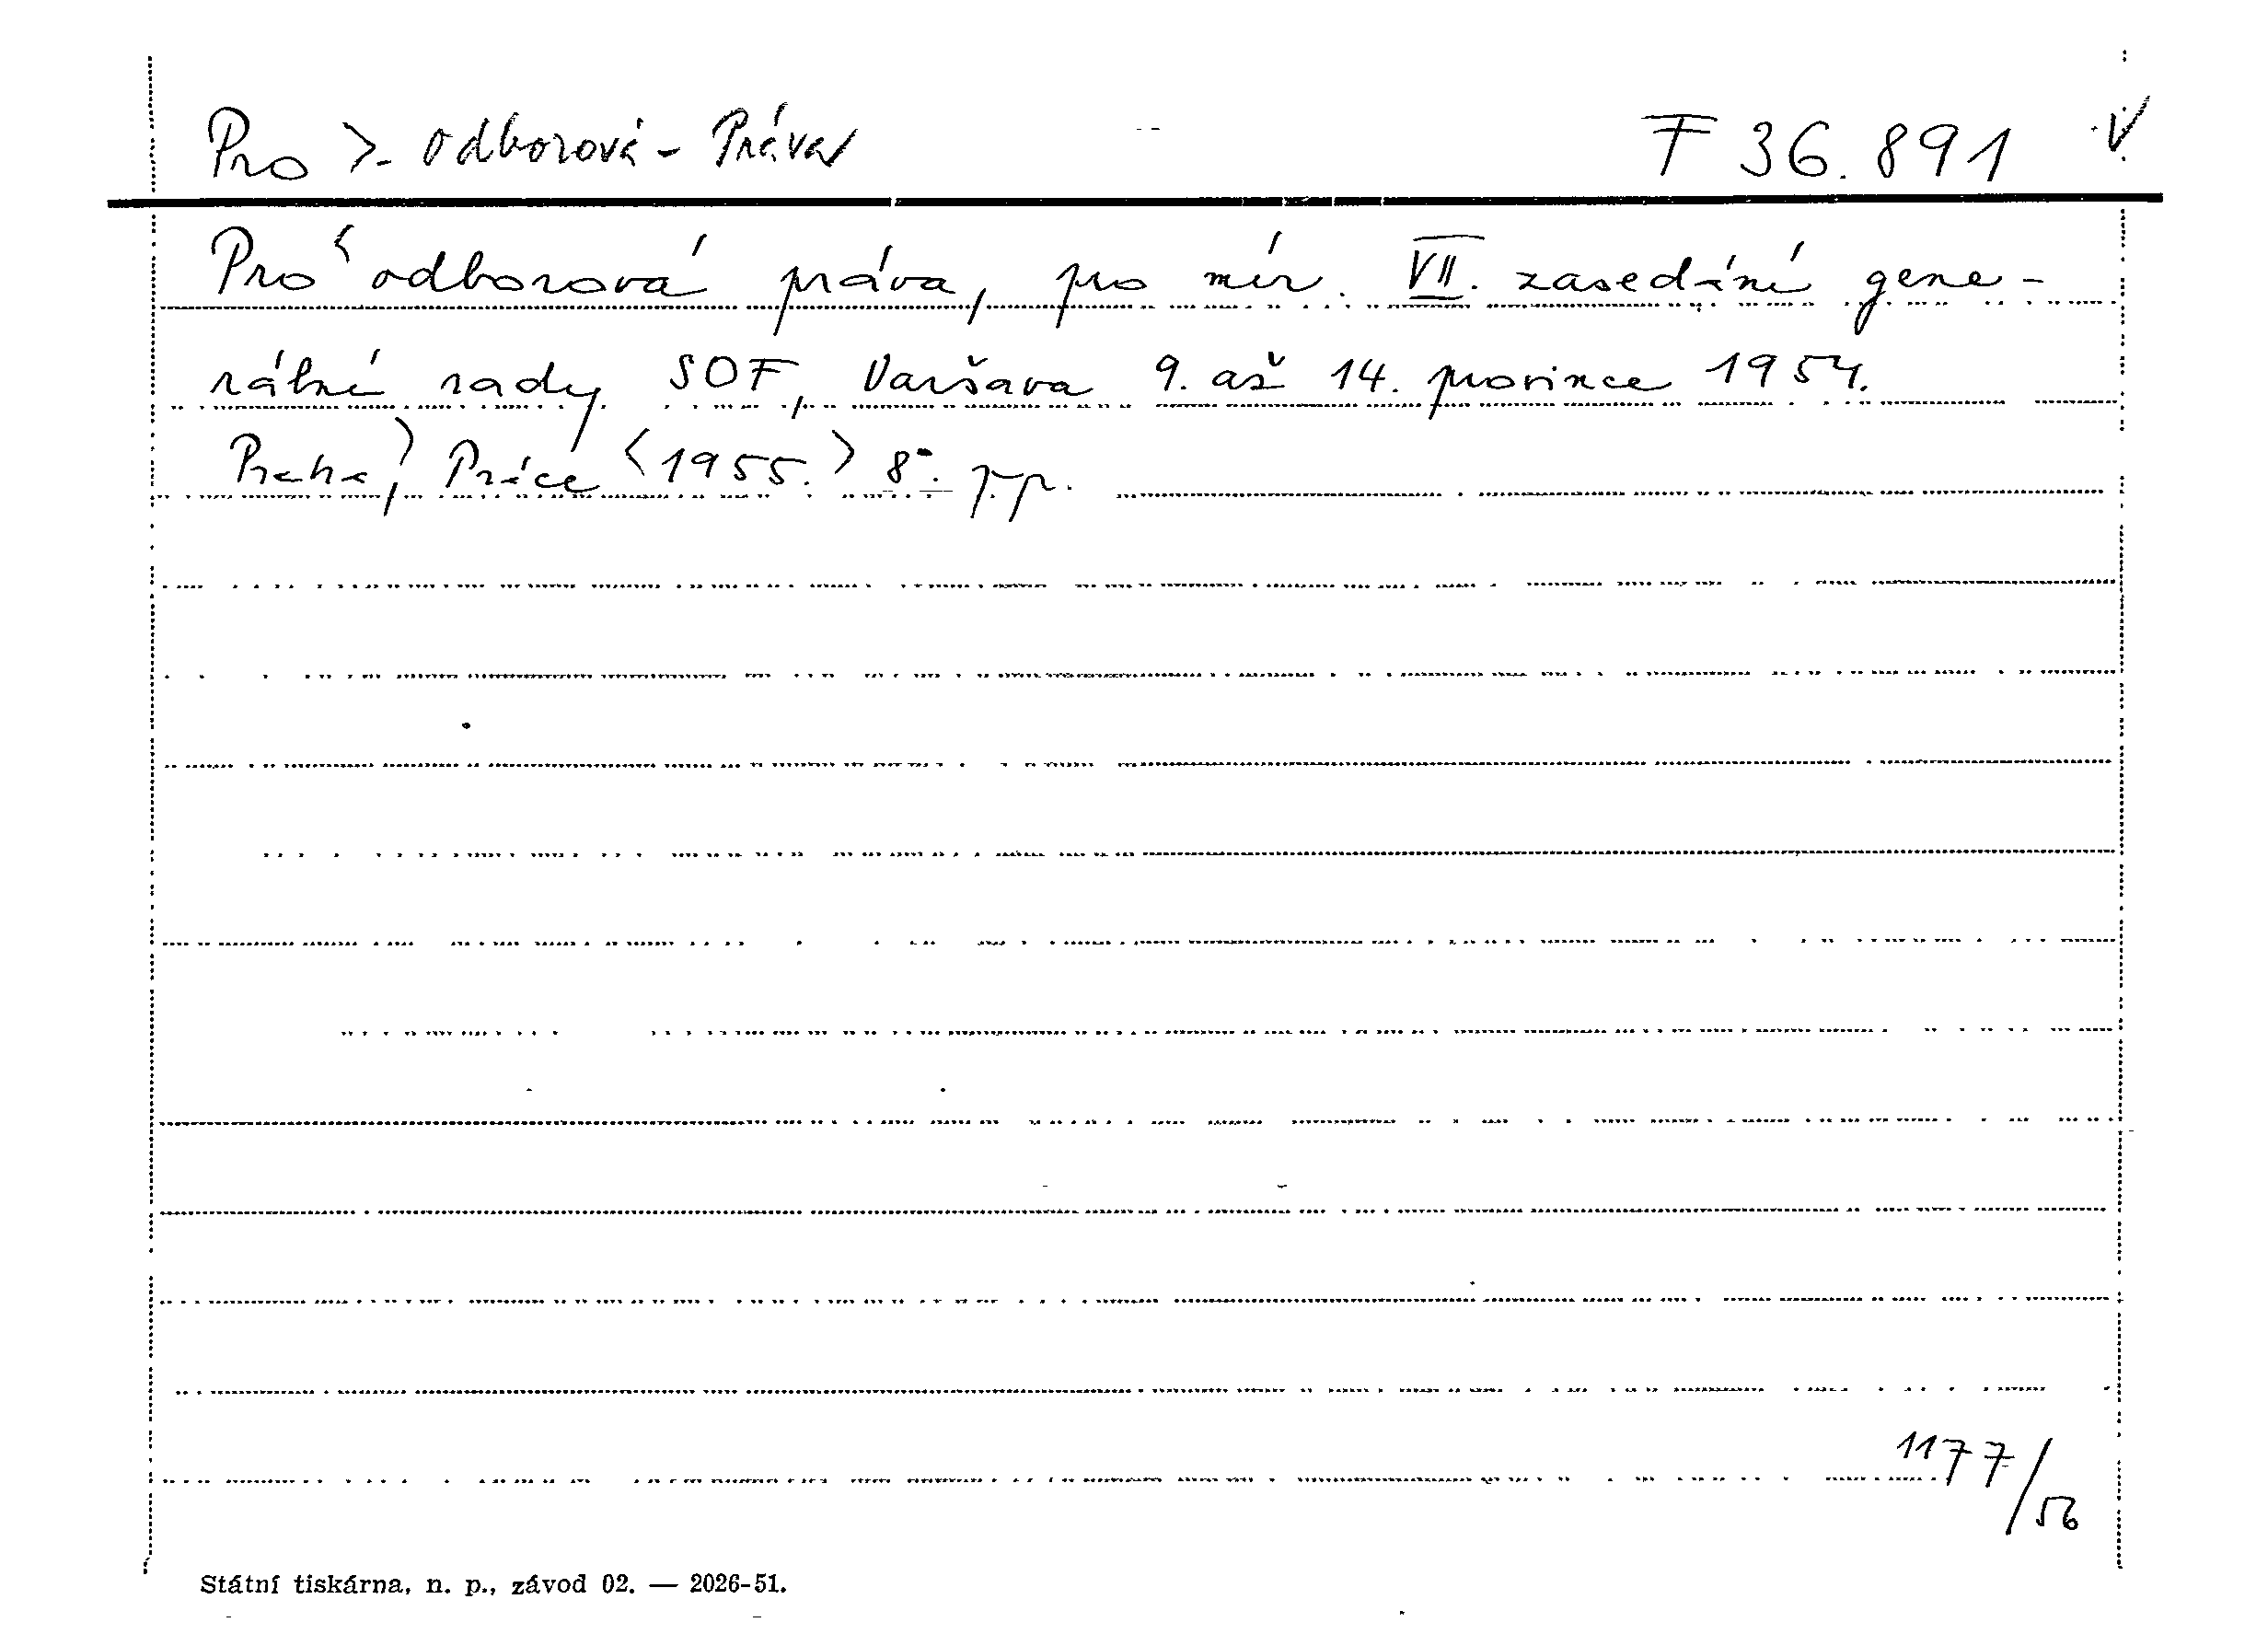 Pro >- odborová - Práva F 36.891 V.
Pro < odborová práva, pro mír. VII. zasedání gene-
rální rady SOF, Varšava 9. až 14. prosince 1954.
Praha,) Práce <1955.> 8°. pp.
1177/56
Státní tiskárna, n. p., závod 02. — 2026-51.